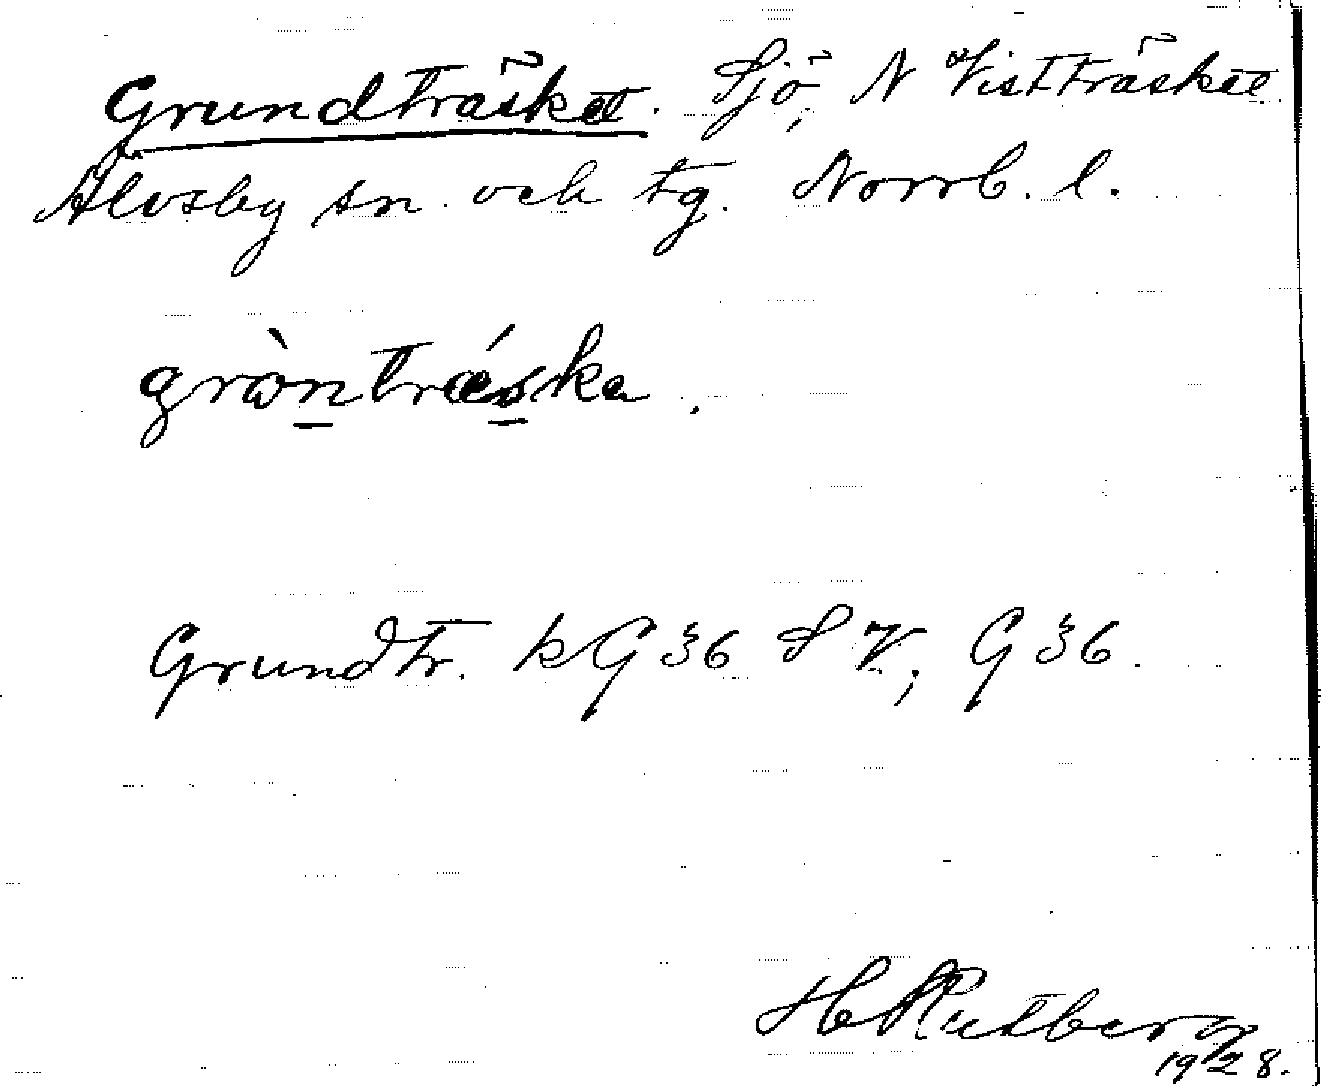 Grundträsket. Sjö, N Vistträsket
Älvsby sn. och tg. Norrb. l.
gròntrǽska.
Grundtr. kG36 SV, G36.
H Rutberg
1928.